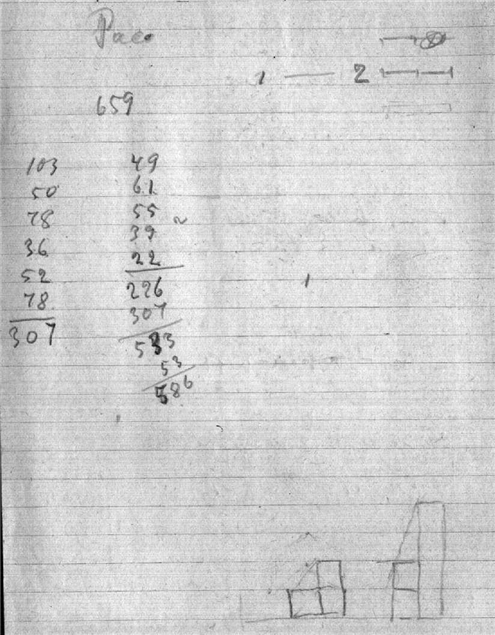 1 — 2
659
103 49
50 61
78 55
36 39
52 22
78 226
307 307
533
53
586